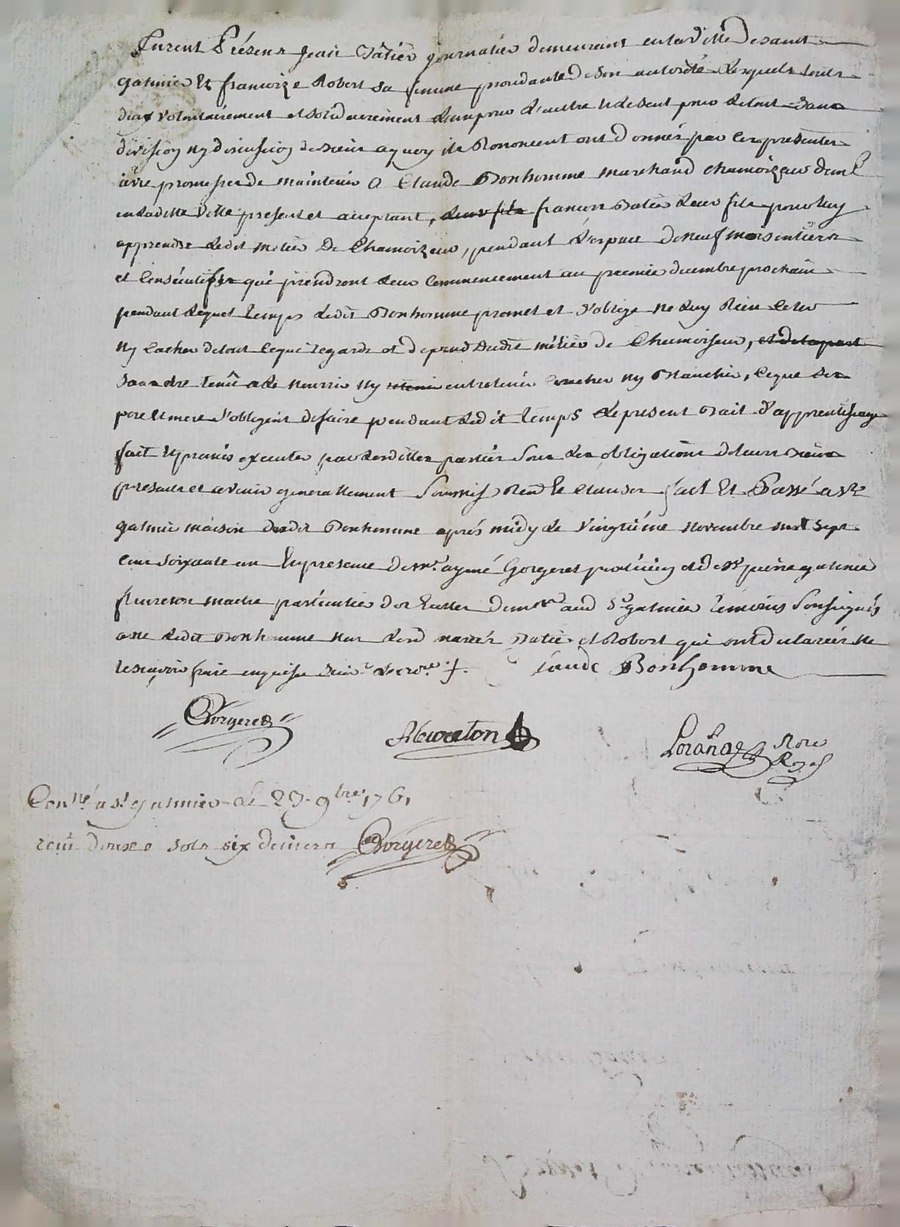 Furent Présens Jean Batier journalier demeurant en la ville de saint
galmier Et francoize Robert sa femme procédante de son autorité lesquels tous
deux volontairement et solidairement l'un pour l'autre et le seul pour le tout sans
division ny discussion de sieur a quoy ils Renoncent ont donnés par ces presentes
avec promesse de maintenir a Claude Bonhomme marchand chamoizeur
en ladite ville present et acceptant, leur fils francois Batier leur fils pour luy
apprendre ledit métier de Chamoizeur, pendant l'espace de neuf mois entiers
et Consécutifs qui prendront leur Commencement au premier decembre prochain
pendant lequel temps ledit Bonhomme promet et s'oblige ne luy Rien Celer
Ny Cacher de tout ce qui regarde et depend dudit métier de Chamoiseur, et de la part
sans etre tenû a le nourrir Ny entretenir coucher ny Blanchir, ce que les
pere Et mere s'obligent de faire pendant ledit temps le present Bail d'apprentissage
fait Et promis executer par lesdittes parties sous les obligations de leurs Biens
presents et avenir generallement Soumis Ren.d Et Clauses fait Et Passé a St
galmier maison dudit Bonhomme apres midy le vingtième novembre mil sept
Cent soixante un En presence de mr aymé Gorgeret praticien dudit St galmier
fleureton maitre particulier demrt aud St galmier temoins Soussignés
avec ledit Bonhomme non les mariés Batier et Robort qui ont declarés ne
le scavoir faire enquis Claude Bonhomme
Gorgeret
fleureton
Lorange Nore Royal
Con.lé a St galmier le 23 9bre 1761
recu douse sols six deniers Gorgeret